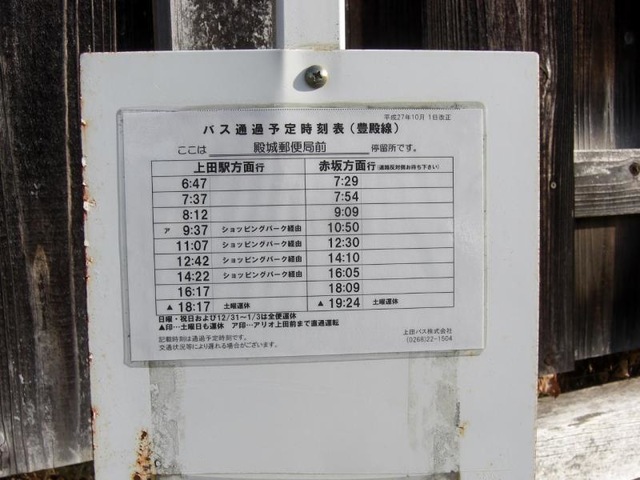 平成27年10月1日改正
バス通過予定時刻表（豊殿線）
ここは 殿城郵便局前 停留所です。
上田駅方面行 赤坂方面行（道路反対側お待ち下さい）
6:47 7:29
7:37 7:54
8:12 9:09
ア 9:37 ショッピングパーク経由 10:50
11:07 ショッピングパーク経由 12:30
12:42 ショッピングパーク経由 14:10
14:22 ショッピングパーク経由 16:05
16:17 18:09
▲ 18:17 土曜運休 ▲ 19:24 土曜運休
日曜・祝日および12/31～1/3は全便運休
▲印…土曜日も運休 ア印…アリオ上田前まで直通運転
記載時刻は通過予定時刻です。
交通状況等により遅れる場合がございます。
上田バス株式会社
(0268)22-1504